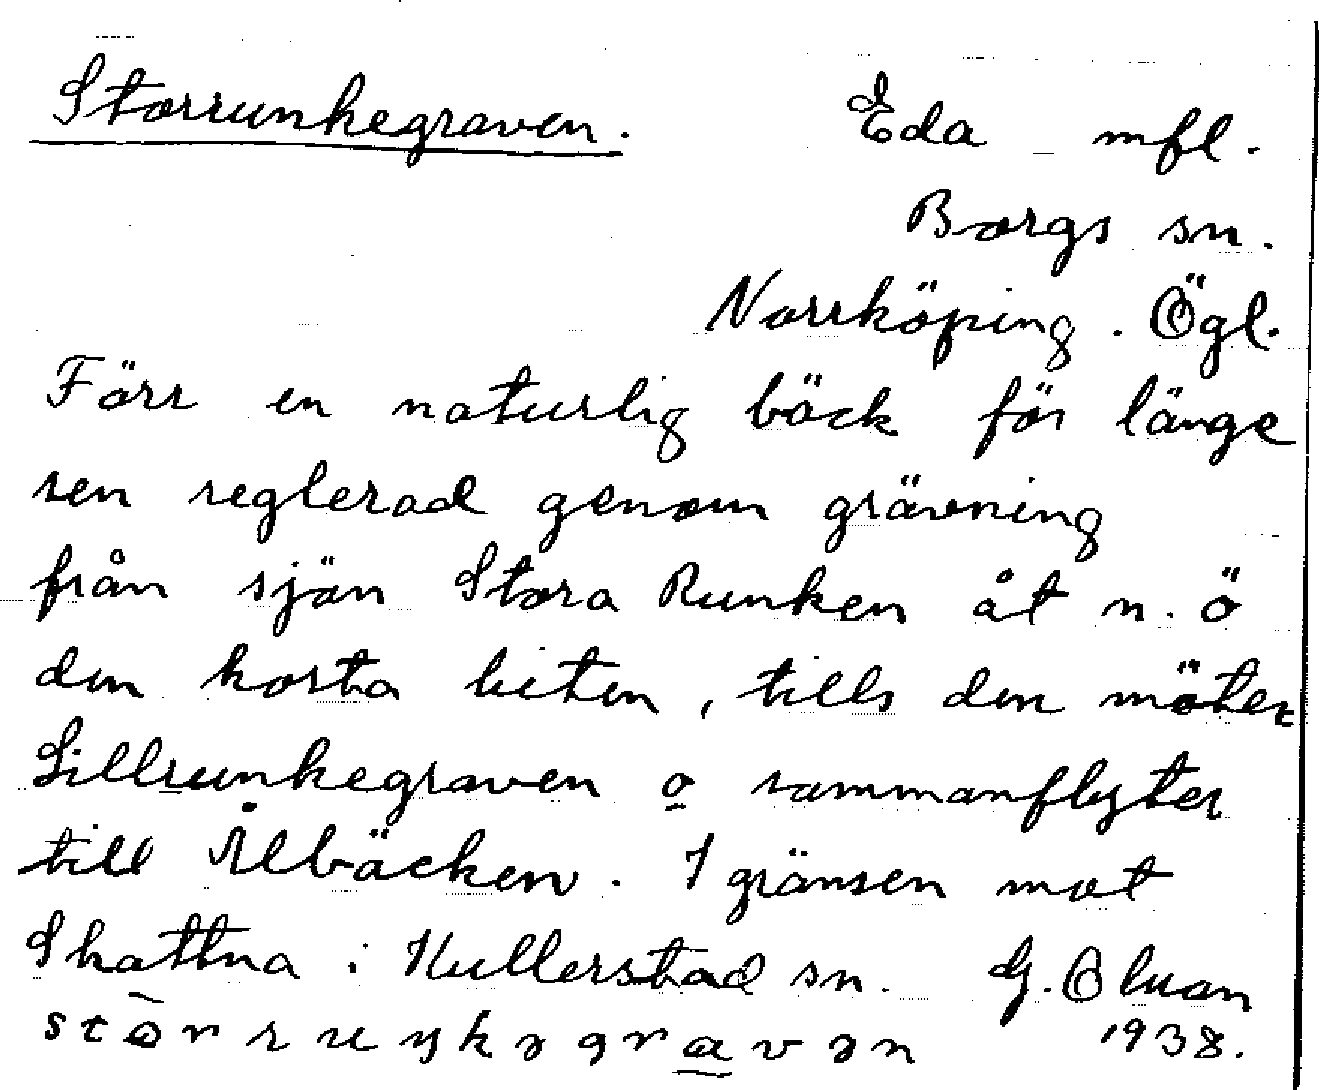 Storrunkegraven. Eda mfl.
Borgs sn.
Norrköping. Ögl.
Förr en naturlig bäck för länge
sen reglerad genom grävning
från sjön Stora Runken åt n. ö
den korta biten, tills den möter
Lillrunkegraven o sammanflyter
till Ålbäcken. I gränsen mot
Skattna i Kullerstad sn. G.
1938.